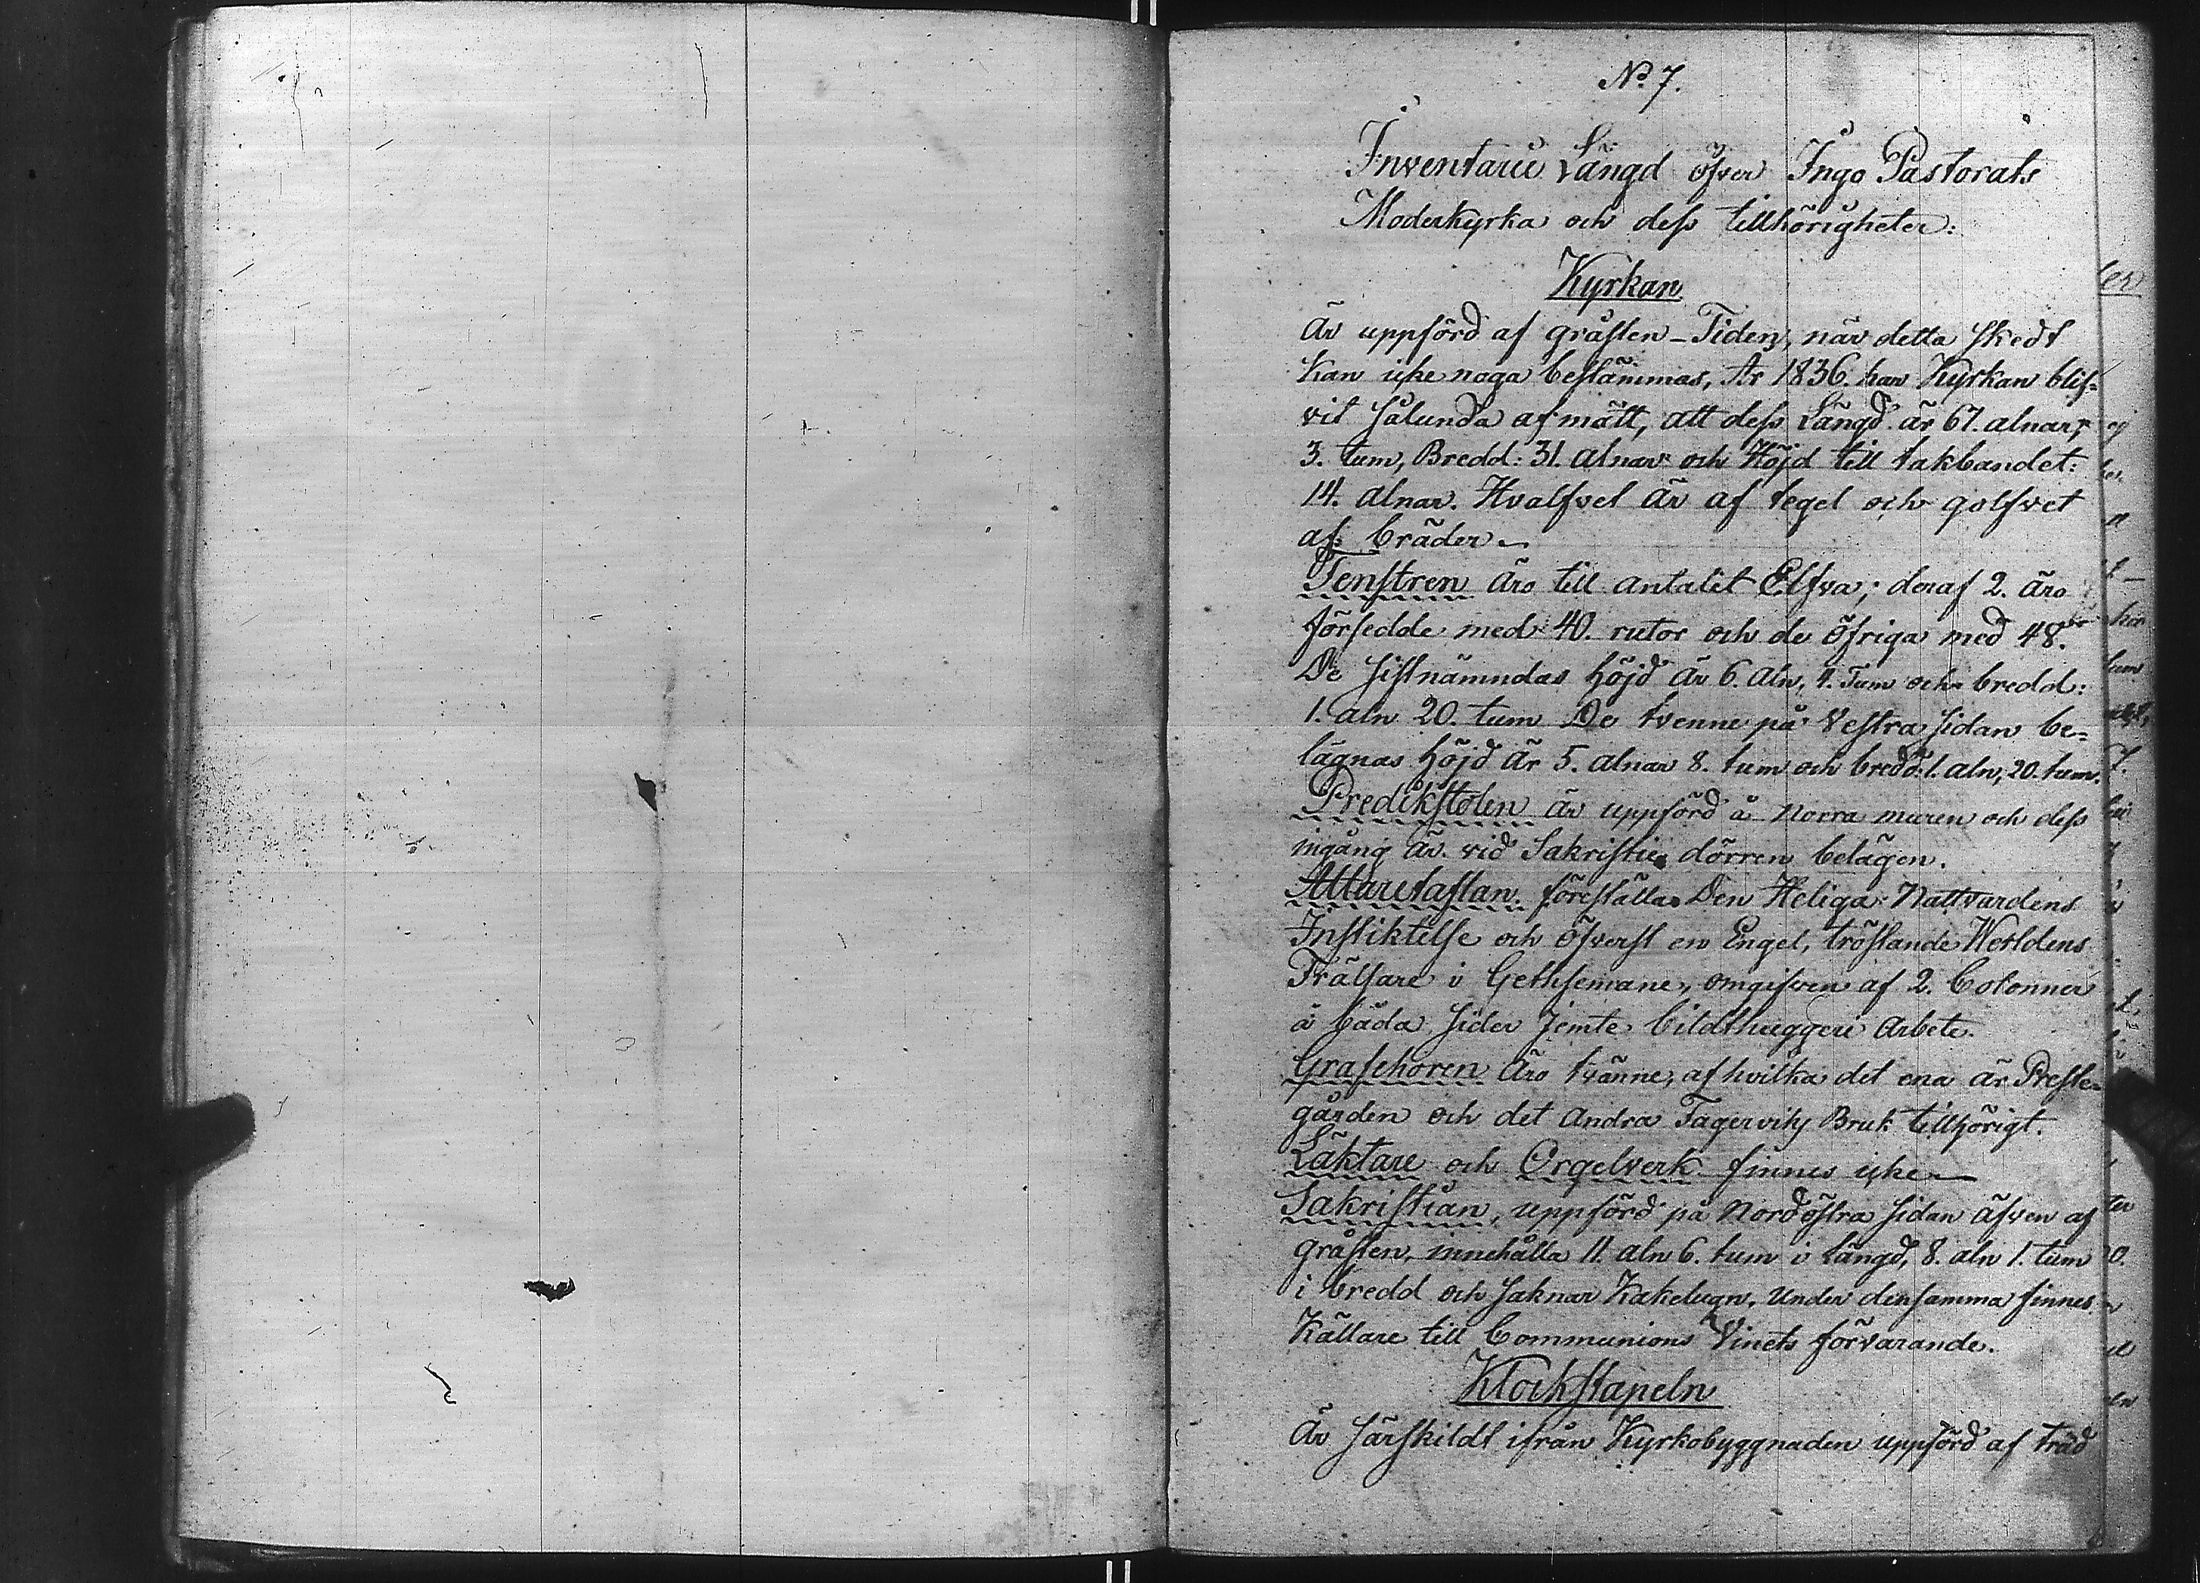 No 7.
Inventarii Längd öfver Ingo Pastorats
Moderkyrka och dess tillhörigheter:
Kyrkan
är uppförd af gråsten – Tiden, när detta skedt
kan icke noga bestämmas, År 1836. har Kyrkan blif=
vit sålunda afmätt, att dess Längd är 67. alnar,
3. tum, Bredd: 31. alnar och Höjd till takbandet:
14. alnar. Hvalfvet är af tegel och golfvet
af bräder.—
Fenstren äro till antalet Elfva; deraf 2. äro
försedde med 40. rutor och de öfriga med 48.
De sistnämndas höjd är 6. aln, 4. Tum och bredd:
1. aln 20. tum De tvenne på Vestra sidan be=
lägnas höjd är 5. alnar 8. tum och bredd: 1. aln, 20. tum.
Predikstolen är uppförd å Norra muren och dess
ingång är vid Sakristie dörren belägen.
Altaretaflan föreställa Den Heliga Nattvardens
Instiktelse och öfverst en Engel, tröstande Werldens
Frälsare i Gethsemane, omgifven af 2. Colonner
å båda sidor jemte bildthuggeri Arbete.
Grafchoren äro tvänne, af hvilka det ena är Preste=
gården och det Andra Fagerviks Bruk tillhörigt.
Läktare och Orgelverk finnes icke —
Sakristian, uppförd på Nordöstra sidan äfven af
gråsten, innehålla 11. aln 6. tum i Längd, 8. aln 1. tum
i bredd och saknar Kakelugn. Under densamma finnes
Källare till Communions Vinets förvarande.
Klockstapeln
Är särskildt ifrån Kyrkobyggnaden uppförd af träd